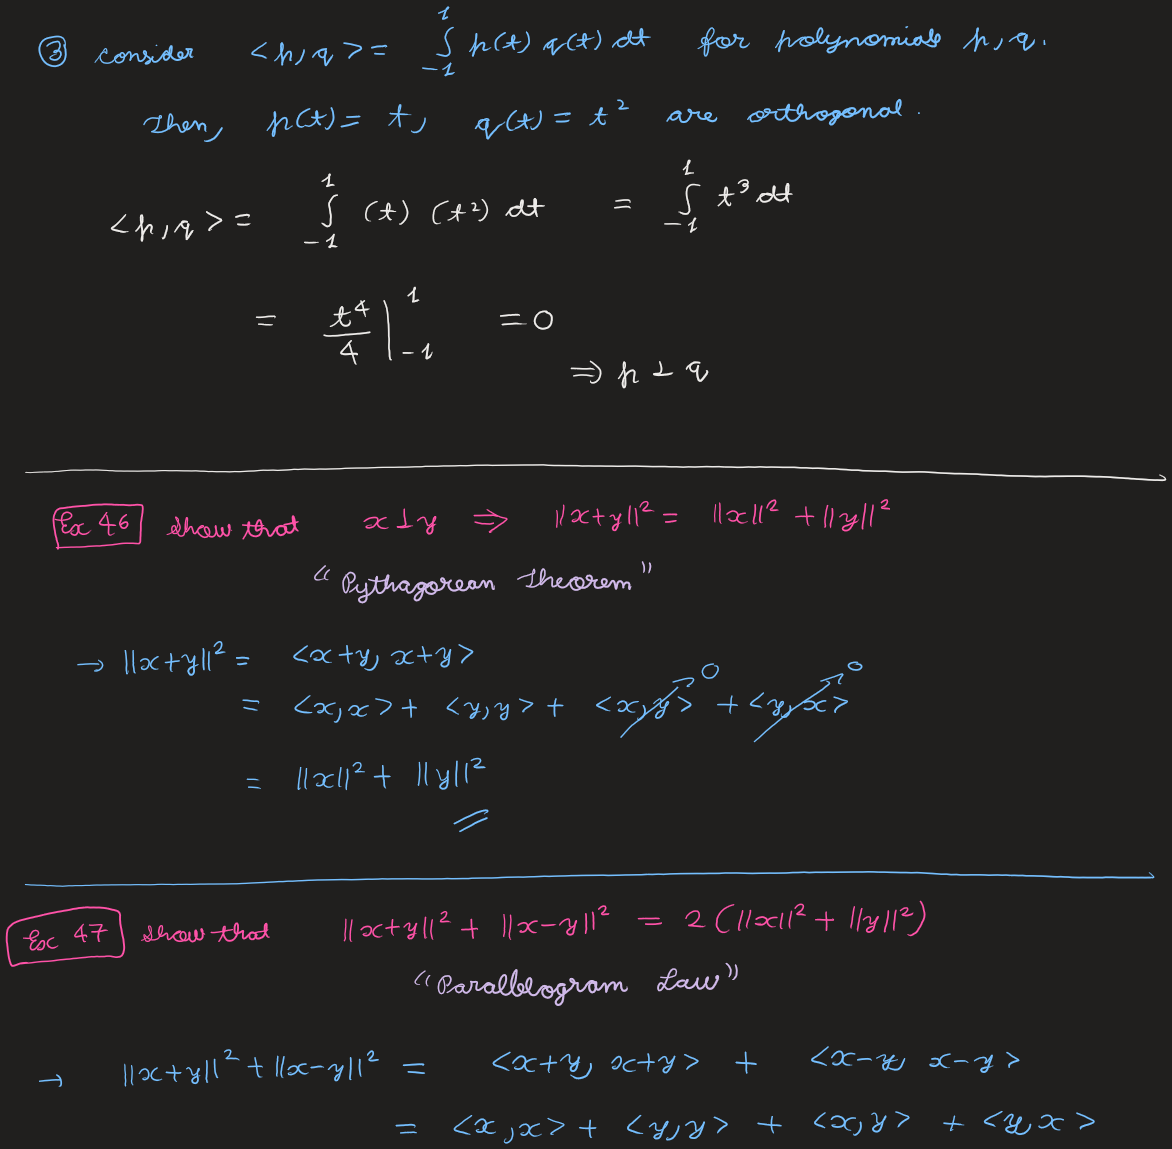 ③ consider <p,q> = ∫₋₁¹ p(t) q(t) dt for polynomials p,q.
Then, p(t) = t, q(t) = t² are orthogonal.
<p,q> = ∫₋₁¹ (t) (t²) dt = ∫₋₁¹ t³ dt
= t⁴/4 |₋₁¹ = 0
⇒ p ⊥ q
Ex 46 show that x⊥y ⇒ ||x+y||² = ||x||² + ||y||²
"Pythagorean Theorem"
→ ||x+y||² = <x+y, x+y>
= <x,x> + <y,y> + <x,y>↗0 + <y,x>↗0
= ||x||² + ||y||²
Ex 47 show that ||x+y||² + ||x-y||² = 2(||x||² + ||y||²)
"Parallelogram Law"
→ ||x+y||² + ||x-y||² = <x+y, x+y> + <x-y, x-y>
= <x,x> + <y,y> + <x,y> + <y,x>